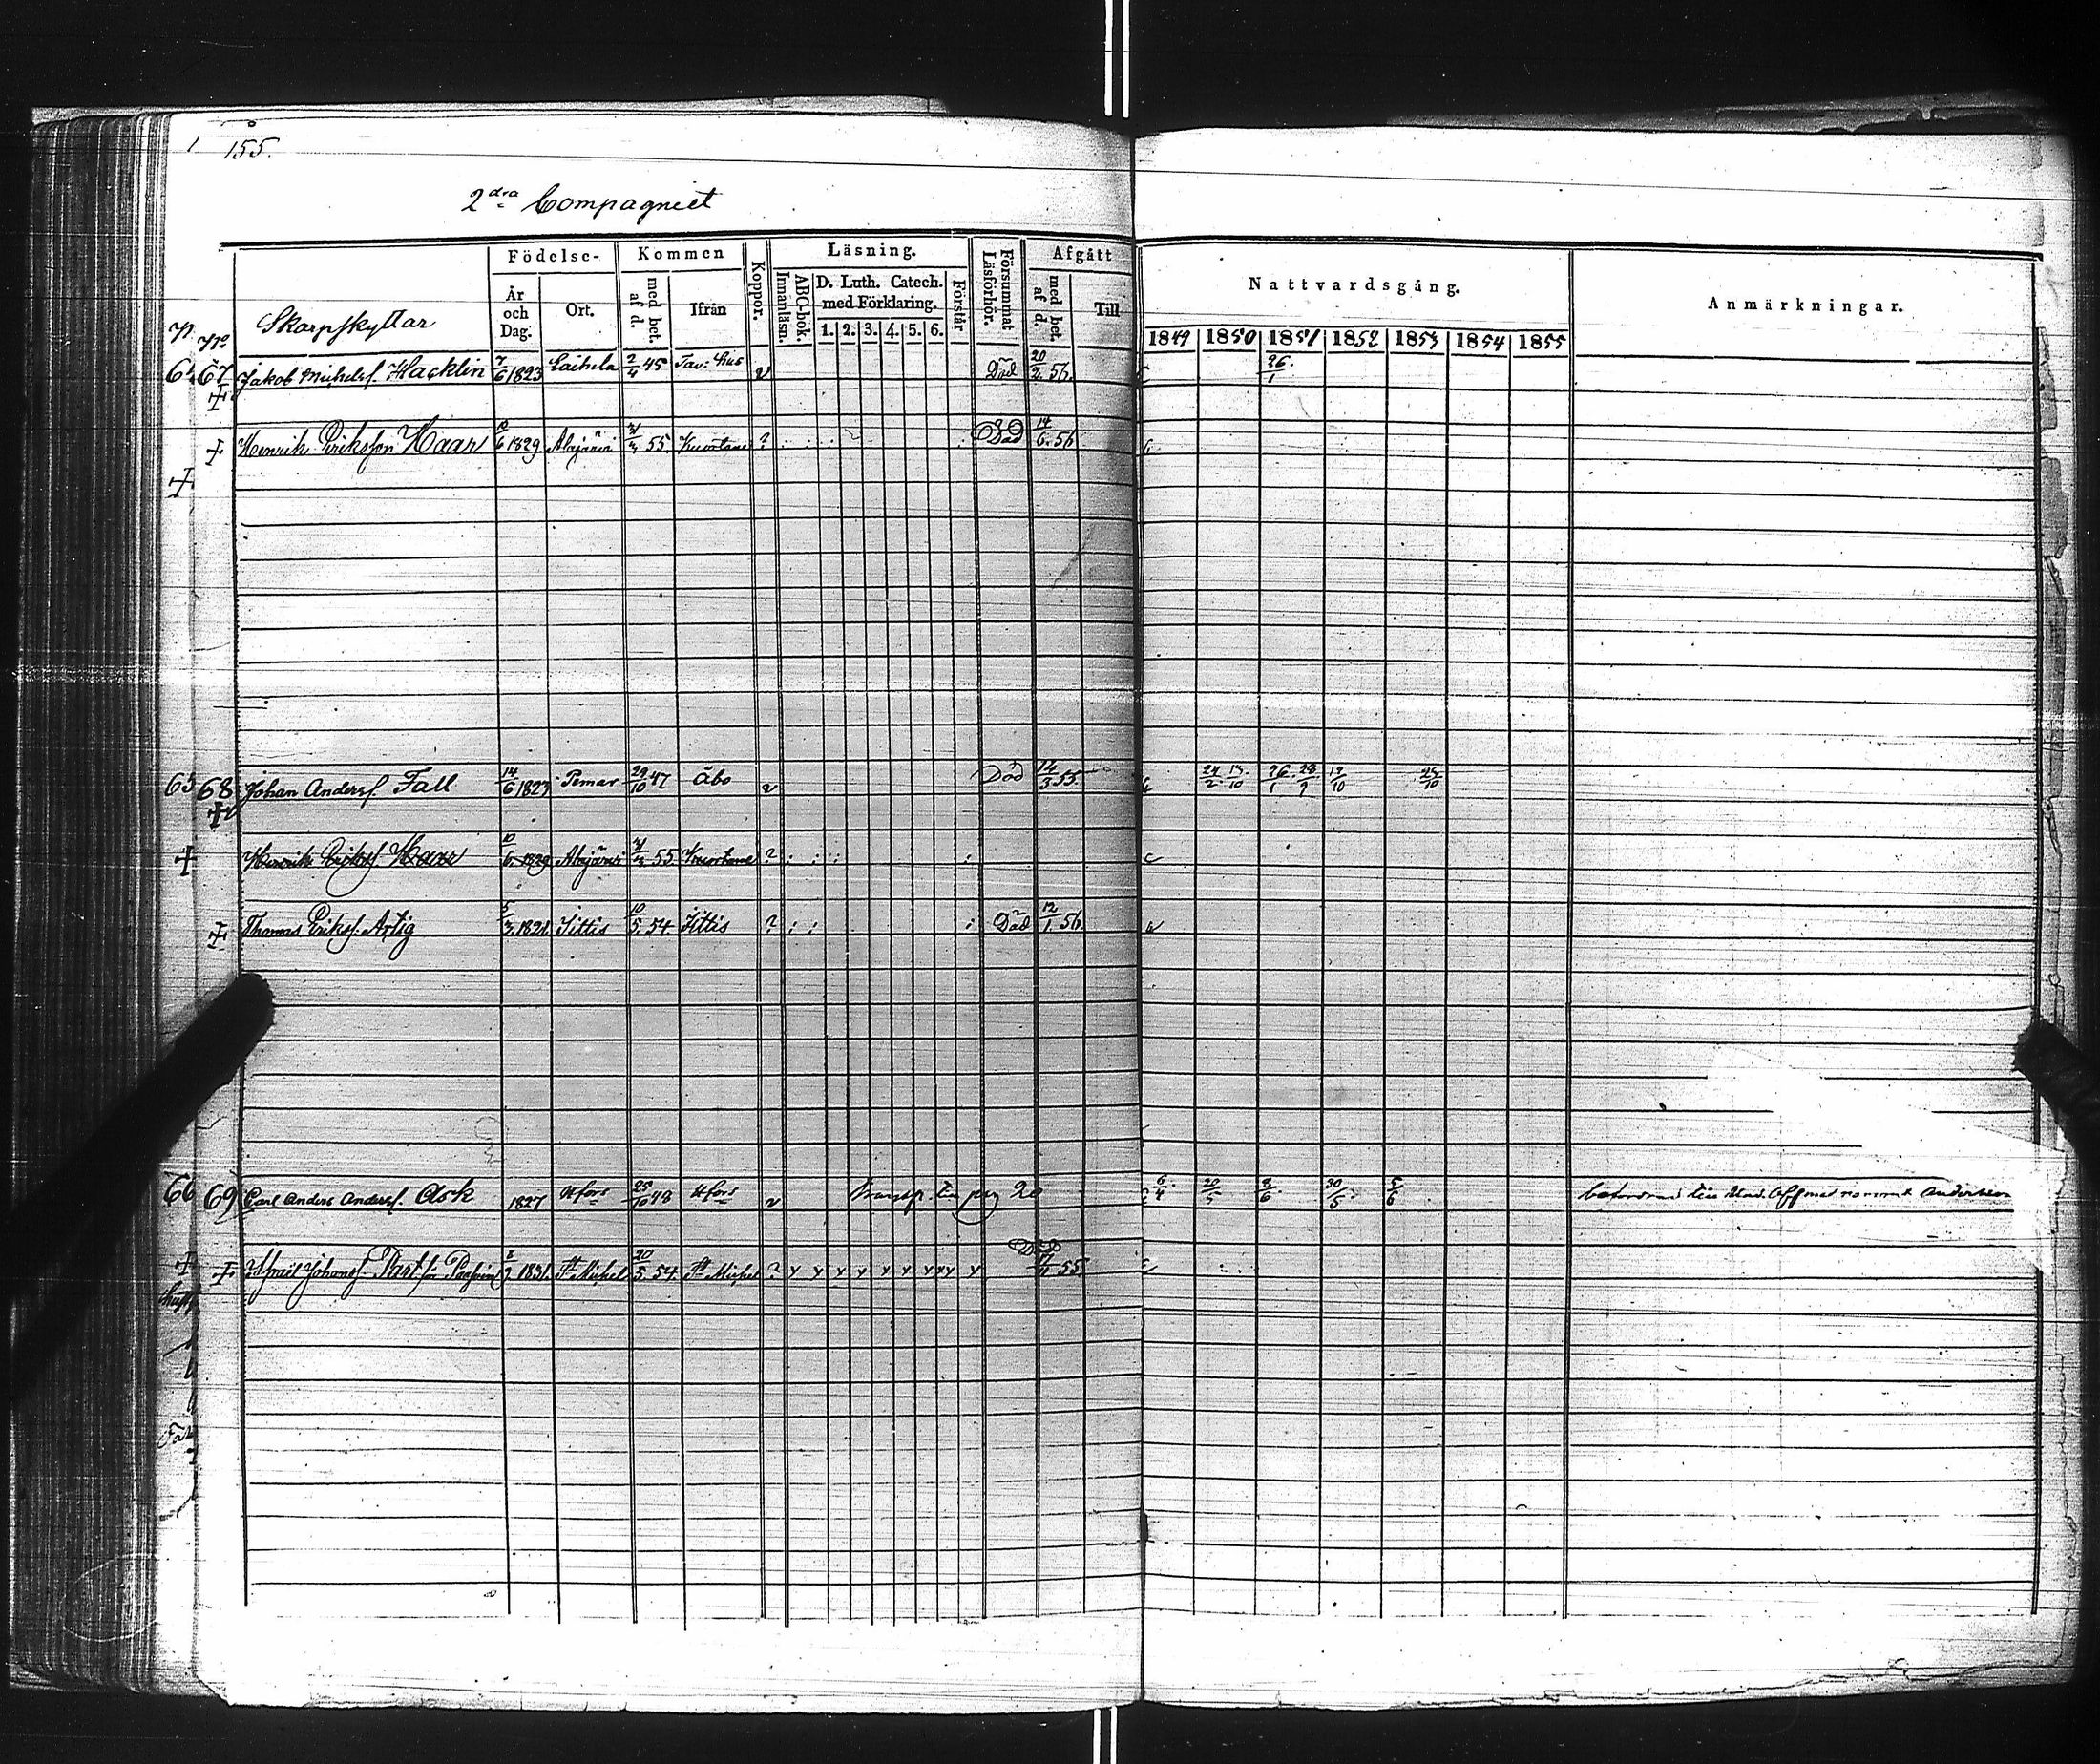 155.
2dra Compagniet
Skarpskyttar
No
Födelse-
År och Dag.
Ort.
Kommen
med bet. af d.
Ifrån
Koppor.
Läsning.
Innanläsn.
ABC-bok.
D. Luth. Catech. med Förklaring.
1. 2. 3. 4. 5. 6.
Förstår
Försummat Läsförhör.
Afgått
med bet. af d.
Till
Nattvardsgång.
1849 1850 1851 1852 1853 1854 1855
Anmärkningar.
67 Jakob Michelsf. Hacklin 7/6 1823 Laihela 2/4 45 Tav: hus v Död 20/2 56. 26/1
Henrik Eriksson Haar 10/6 1829 Alajärvi 55 Kuortane ? Död 14/6 56
65 68 Johan Andersf. Fall 14/6 1827 Pemar 29/10 47 Åbo v Död 14/3 55 24/2 13/10 26/1 28/9 19/10
Henrik Eriksf Haar 10/6 1829 Alajärvi 55 Kuortane ?
Thomas Eriksf. Artig 5/3 1821 Jittis 10/5 54. Jittis ? Död 12/1 56
66 69 Carl Anders Andersf. Ask 1827 Hfors 25/10 48 Hfors v Transp. pag 20 6/4 20/5 8/6 30/5 5/6 Und. Off med namnet Andersson
Johansf Rast 1831 St Michel 20/5 54. St Michel ? Död 55